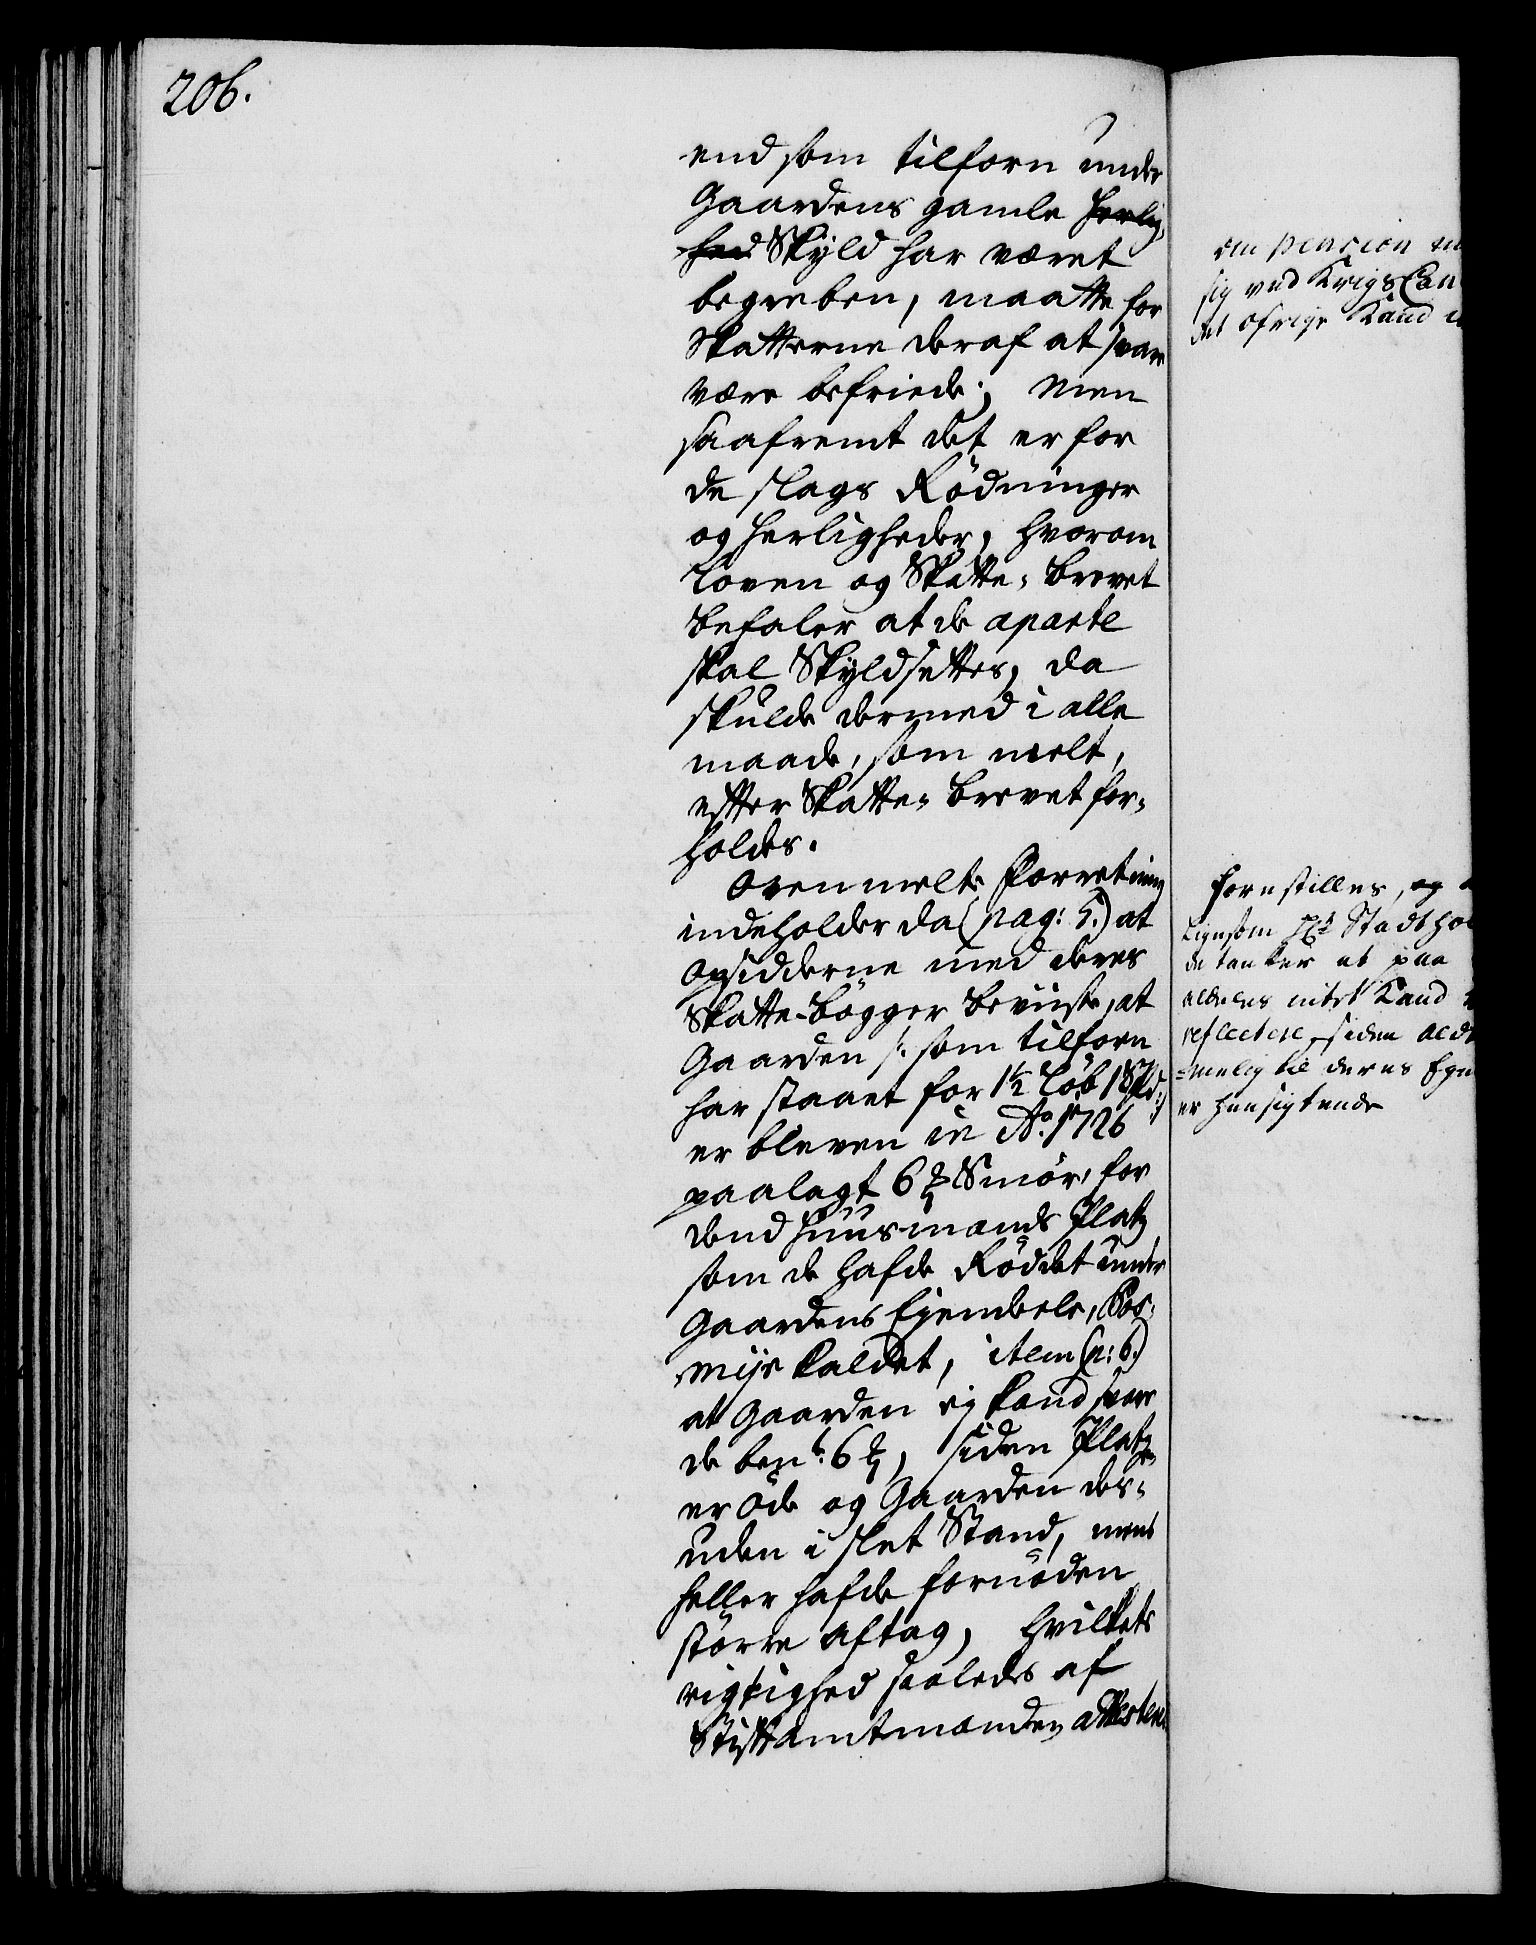 206.
end som tilforn under
Gaardens gamle herlig-
hed Skyld har været
begreben, maatte for
Skatterne deraf at svare
være befriede; Men
saafremt det er for
de slags Rödninger
og herligheder, hvorom
Loven og Skatte-brevet
befaler at de aparte
skal Skyldsettes, da
skulde dermed i alle
maade, som melt,
efter Skatte-brevet for-
holdes.
Ovenmelte Forretning
indeholder da (pag: 5.) at
Opsidderne med deres
Skatte-bögger beviiste, at
Gaarden /: som tilforn
har staaet for 1½ Löb 1 Spd:/
er bleven in Ao. 1726
paalagt 6 ₰ Smör, for
dend huusmands Platz
som de hafde Röddet under
Gaardens Ejendeele, Kos-
myr kaldet, item (p: 6.)
at Gaarden ej kand svare
de bente. 6 ₰, siden Platzen
er öde og Gaarden des-
uden i slet Stand, mens
heller hafde fornöden
större aftag, hvilket
rigtighed saaledes af
Stiftamtmanden attesteres
om pension
sig ved Krigs Can
det öfrige Kand
forestilles, og
Ligesom Hr. Stadthol
de tanker at paa
aldeles intet Kand
reflectere, siden
-melig til deres
er hensigtende